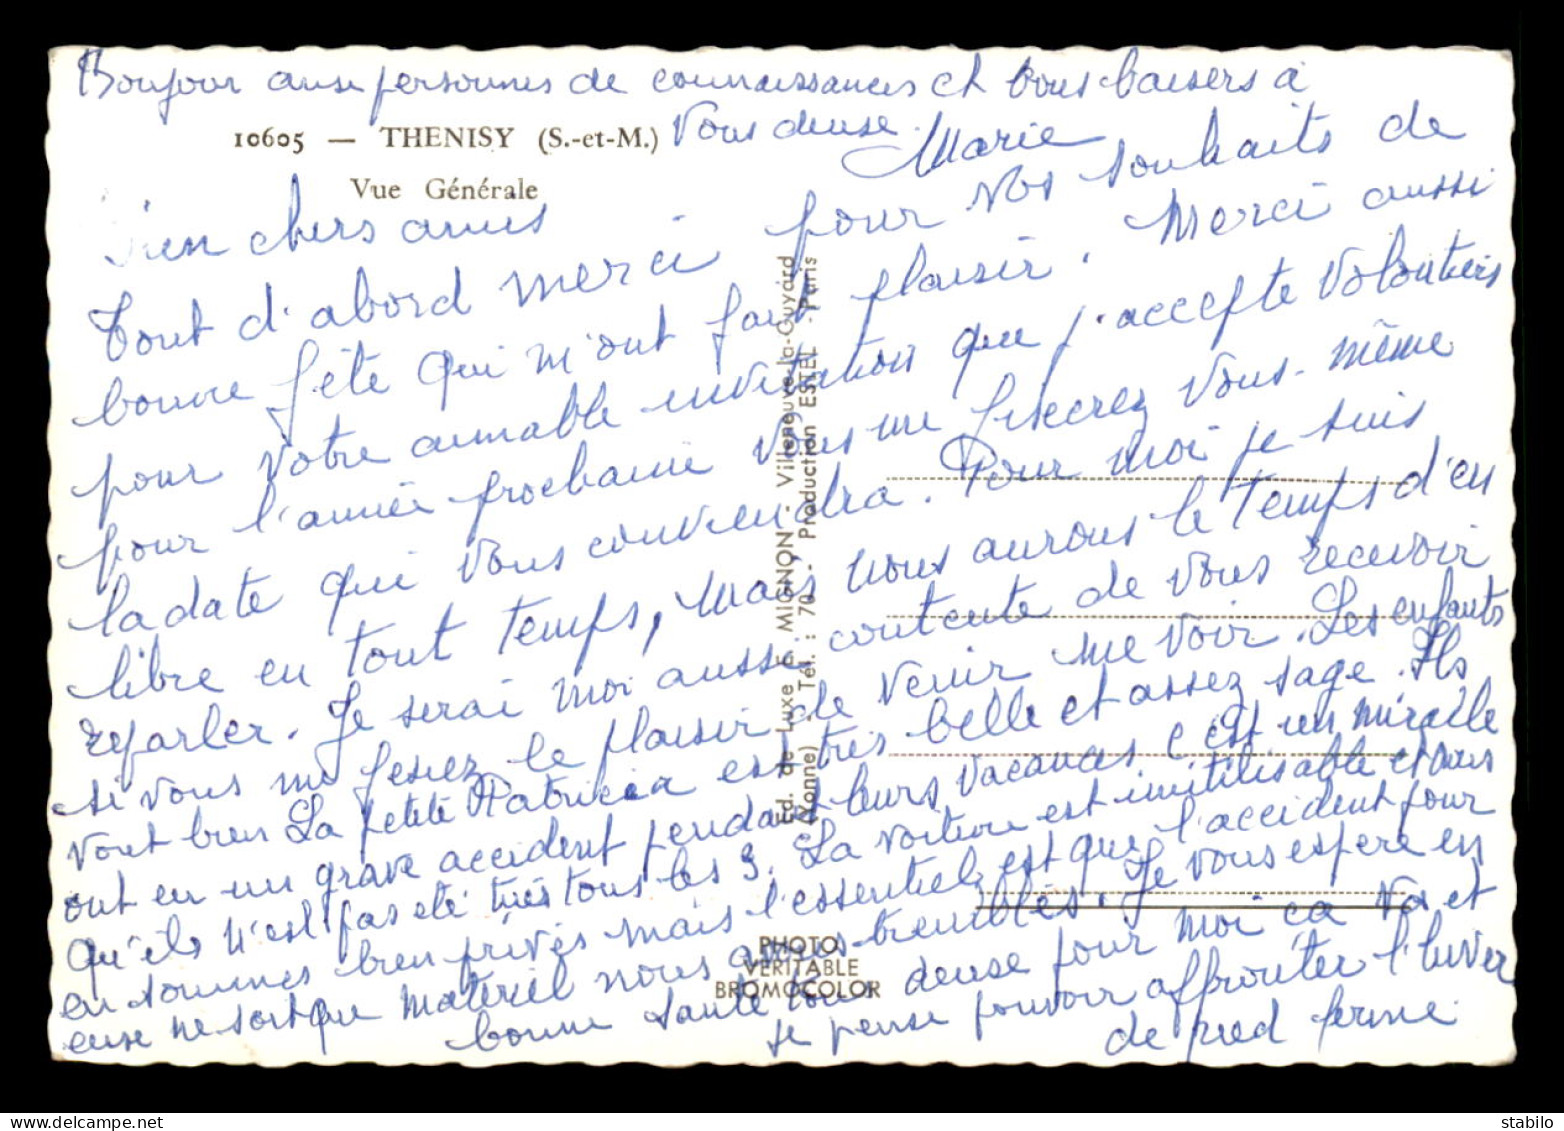 Bonjour ause personnes de connaissances et bons baisers à
vous deuse. Marie
10605 — THENISY (S.-et-M.)
Vue Générale
Bien chers amis
Tout d'abord merci pour vos souhaits de
bonne fête qui m'ont fait plaisir. Merci aussi
pour votre aimable invitation que j'accepte volontiers
pour l'année prochaine vous me fixerez vous-même
la date qui vous conviendra. Pour moi je suis
libre en tout temps, mais nous aurons le temps d'en
reparler. Je serai moi aussi contente de vous recevoir
si vous me fesiez le plaisir de venir me voir. Les enfants
vont bien La petite Patricia est très belle et assez sage. Ils
ont eu un grave accident pendant leurs vacances c'est un miracle
qu'ils n'est pas été tués tous les 3. La voiture est inutilisable et nous
en sommes bien privés mais l'essentiel est que l'accident pour
euse ne soit que matériel nous avons tremblés. Je vous espère en
bonne santé tous deuse pour moi ca va et
je pense pouvoir affronter l'hiver
de pied ferme
Ed. de Luxe E. MIGNON - Villeneuve-la-Guyard
(Yonne) - Tél. : 70 - Production ESTEL - Paris
PHOTO
VERITABLE
BROMOCOLOR
stabilo